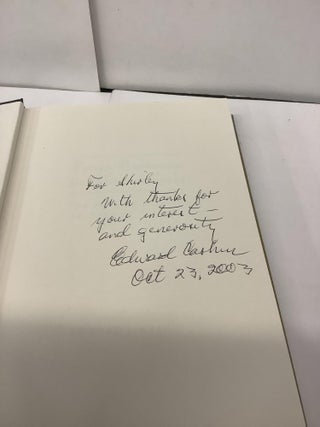 For Shirley
With thanks for
your interest –
and generosity
Edward Cashin
Oct 23, 2003